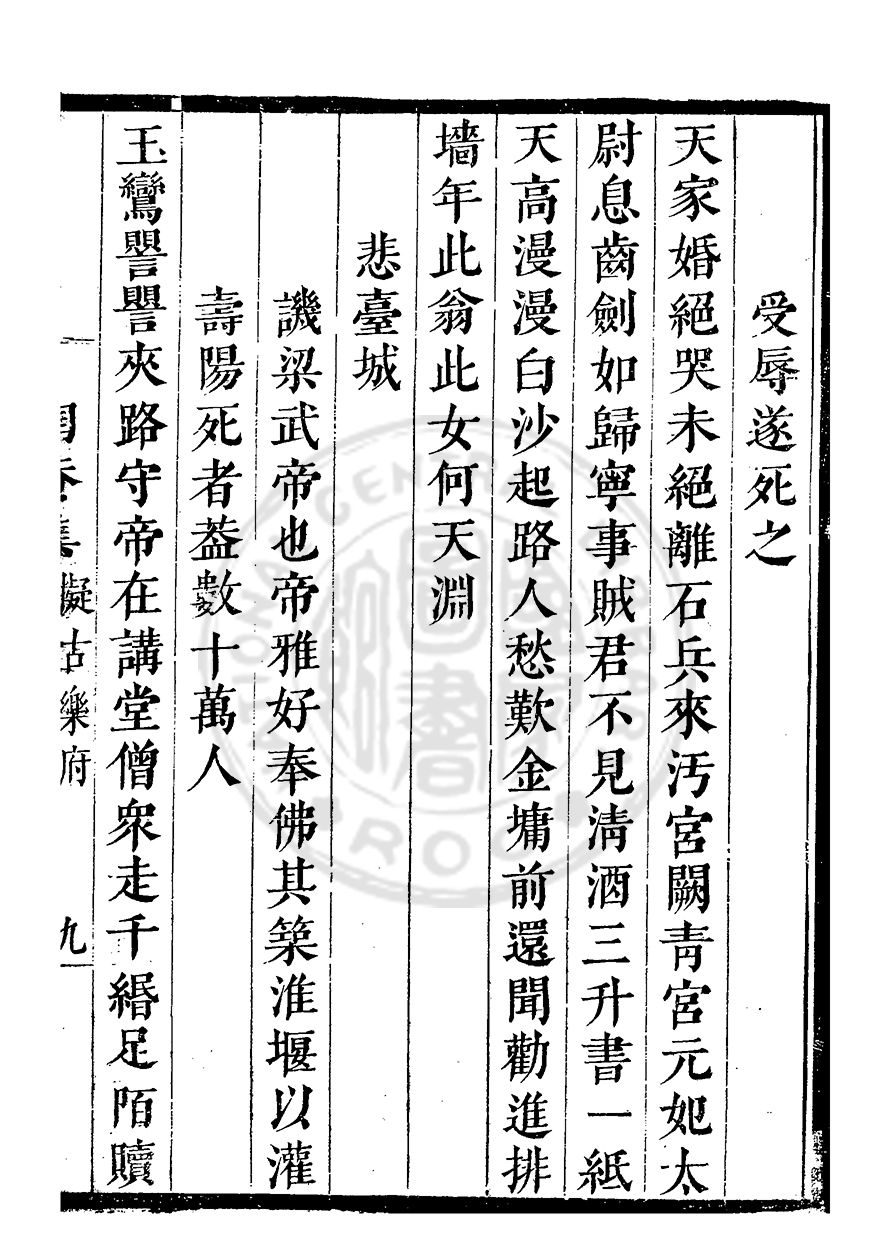 受辱遂死之
天家婚絕哭未絕離石兵來汚宮闕青宮元妃太
尉息齒劍如歸寧事賊君不見清酒三升書一紙
天高漫漫白沙起路人愁歎金墉前還聞勸進排
墻年此翁此女何天淵
悲臺城
譏梁武帝也帝雅好奉佛其築淮堰以灌
壽陽死者葢數十萬人
玉鸞譻譻夾路守帝在講堂僧衆走千緡足陌贖
集擬古樂府 九